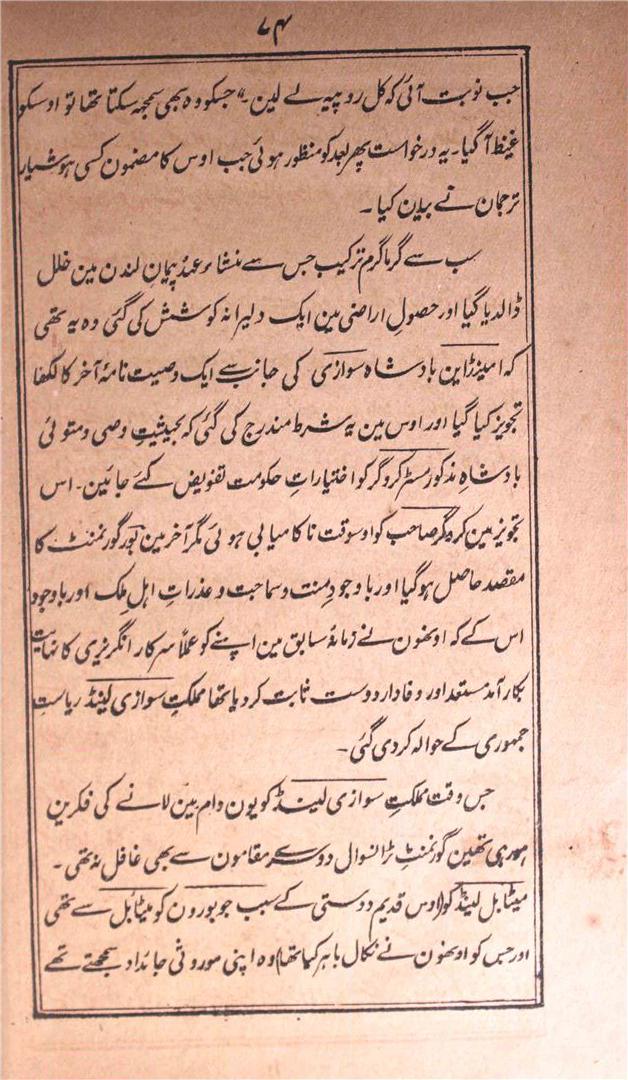 ۷۴
جب نوبت آئی کہ کل روپیہ لے لین۔" جسکو وہ بھی سمجھ سکتا تھا تو اوسکو
غیظ آگیا۔ یہ درخواست پھر بعد کو منظور ہوئی جب اوس کا مضمون کسی ہوشیار
ترجمان نے بیان کیا۔
سب سے گرماگرم ترکیب جس سے منشاء عہد پیمانِ لندن مین خلل
ڈالدیا گیا اور حصولِ اراضی مین ایک دلیرانہ کوشش کی گئی وہ یہ تھی
کہ امینڑاین بادشاہ سوازی کی جانب سے ایک وصیت نامۂ آخر کا لکھنا
تجویز کیا گیا اور اوس مین یہ شرط مندرج کی گئی کہ بحیثیتِ وصی و متولی
بادشاہِ مذکور مسٹر کروگر کو اختیاراتِ حکومت تفویض کئے جائین۔ اس
تجویز مین کروگر صاحب کو اوسوقت ناکامیابی ہوئی مگر آخر مین بور گورنمنٹ کا
مقصد حاصل ہوگیا اور باوجودِ منت و سماحبت و عذراتِ اہلِ ملک اور باوجود
اس کے کہ اونھون نے زمانۂ سابق مین اپنے کو عملاً سرکار انگریزی کا نہایت
بکار آمد مستعد اور وفادار دوست ثابت کردیا تھا مملکتِ سوازی لینڈ ریاستِ
جمہوری کے حوالہ کردی گئی۔
جس وقت مملکتِ سوازی لینڈ کو یون دام مین لانے کی فکرین
ہورہی تھین گورنمنٹِ ٹرانسوال دوسرے مقامون سے بھی غافل نہ تھی۔
میٹابل لینڈ کو (اوس قدیم دوستی کے سبب جو بورون کو میٹابل سے تھی
اور جس کو اونھون نے نکال باہر کیا تھا) وہ اپنی موروثی جائداد سمجھتے تھے